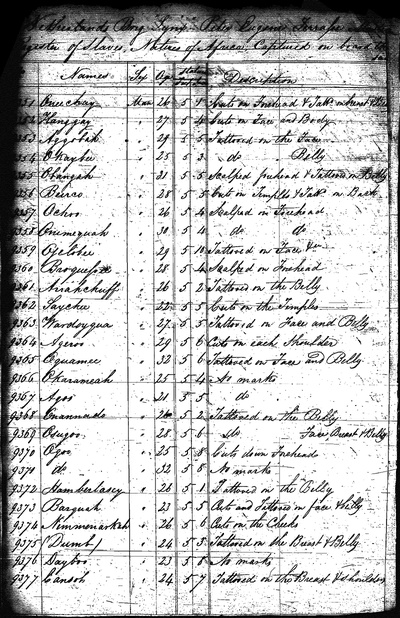 Register of Slaves, Natives of Africa, Captured on board the
Names Sex Age Stature Description
Oneebay Man 26 5 1 Cuts on Forehead & Tatd on breast &
Hanggay " 27 5 4 Cuts on Face and Body
Aggobah " 29 5 5 Tattooed on the Face
Owaybee " 25 5 3 do Belly
Obangah " 31 5 5 Scalped forehead & Tattooed on Belly
Beirco " 28 5 5 Cuts on Temples & Tatd on Back
9357 Ochoo " 26 5 4 Scalped on Forehead
9358 Orumequah " 30 5 4 do do
9359 Ojetobee " 29 5 10 Tattooed on Face &c
9360 Broquefine " 28 5 4 Scalped on Forehead
9361 Ariahchuff " 26 5 2 Tattooed on the Belly
9362 Saychee " 22 5 5 Cuts on the Temples
9363 Wardoygua " 27 5 5 Tattooed on Face and Belly
9364 Ageroo " 29 5 6 Cuts on each Shoulder
9365 Equamee " 32 5 6 Tattooed on Face and Belly
9366 Okarameah " 25 5 4 No marks
9367 Agoo " 21 5 5 do
9368 Onannado " 20 5 2 Tattooed on the Belly
9369 Osugoo " 28 5 6 Do Face, Breast & Belly
9370 Ogoo " 25 5 8 Cuts down Forehead
9371 do " 32 5 8 No marks
9372 Hamberlasey " 26 5 1 Tattooed on the Belly
9373 Barguah " 23 5 5 Cuts and Tattooed on face & belly
9374 Nimmenarkah " 26 5 6 Cuts on the Cheeks
9375 (Dumb) " 24 5 5 Tattooed on the Breast & Belly
9376 Dayboo " 23 5 8 No marks
9377 Cansoh " 24 5 7 Tattooed on the Breast & shoulders